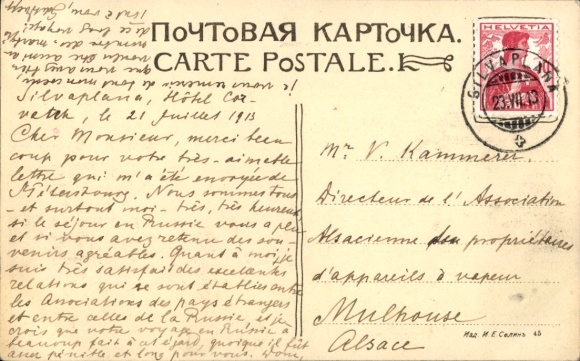 ПОЧТОВАЯ КАРТОЧКА.
CARTE POSTALE.
HELVETIA
SILVAPLANA
23.VII.13
Silvaplana, Hôtel Cor-
vatch, le 21 Juillet 1913
Cher Monsieur, merci beau
coup pour votre très-aimable
lettre qui m'a été envoyée de
Pétersbourg. Nous sommes tous
- et surtout moi - très, très heureux
si le séjour en Russie vous a plu
et si vous avez retenu des sou-
venirs agréables. Quant à moi, je
suis très satisfait des excellentes
relations qui se sont établies entre
les Associations des pays étrangers
et entre celles de la Russie, et je
crois que votre voyage en Russie a
beaucoup fait à cet égard, quoique il fût
un pénible et long pour vous. Donc,
je vous remercie du fond de mon coeur
Mr V. Kammerer
Directeur de l'Association
Alsacienne des propriétaires
d'appareils à vapeur
Mulhouse
Alsace
Изд. И.Е.Селинъ 45